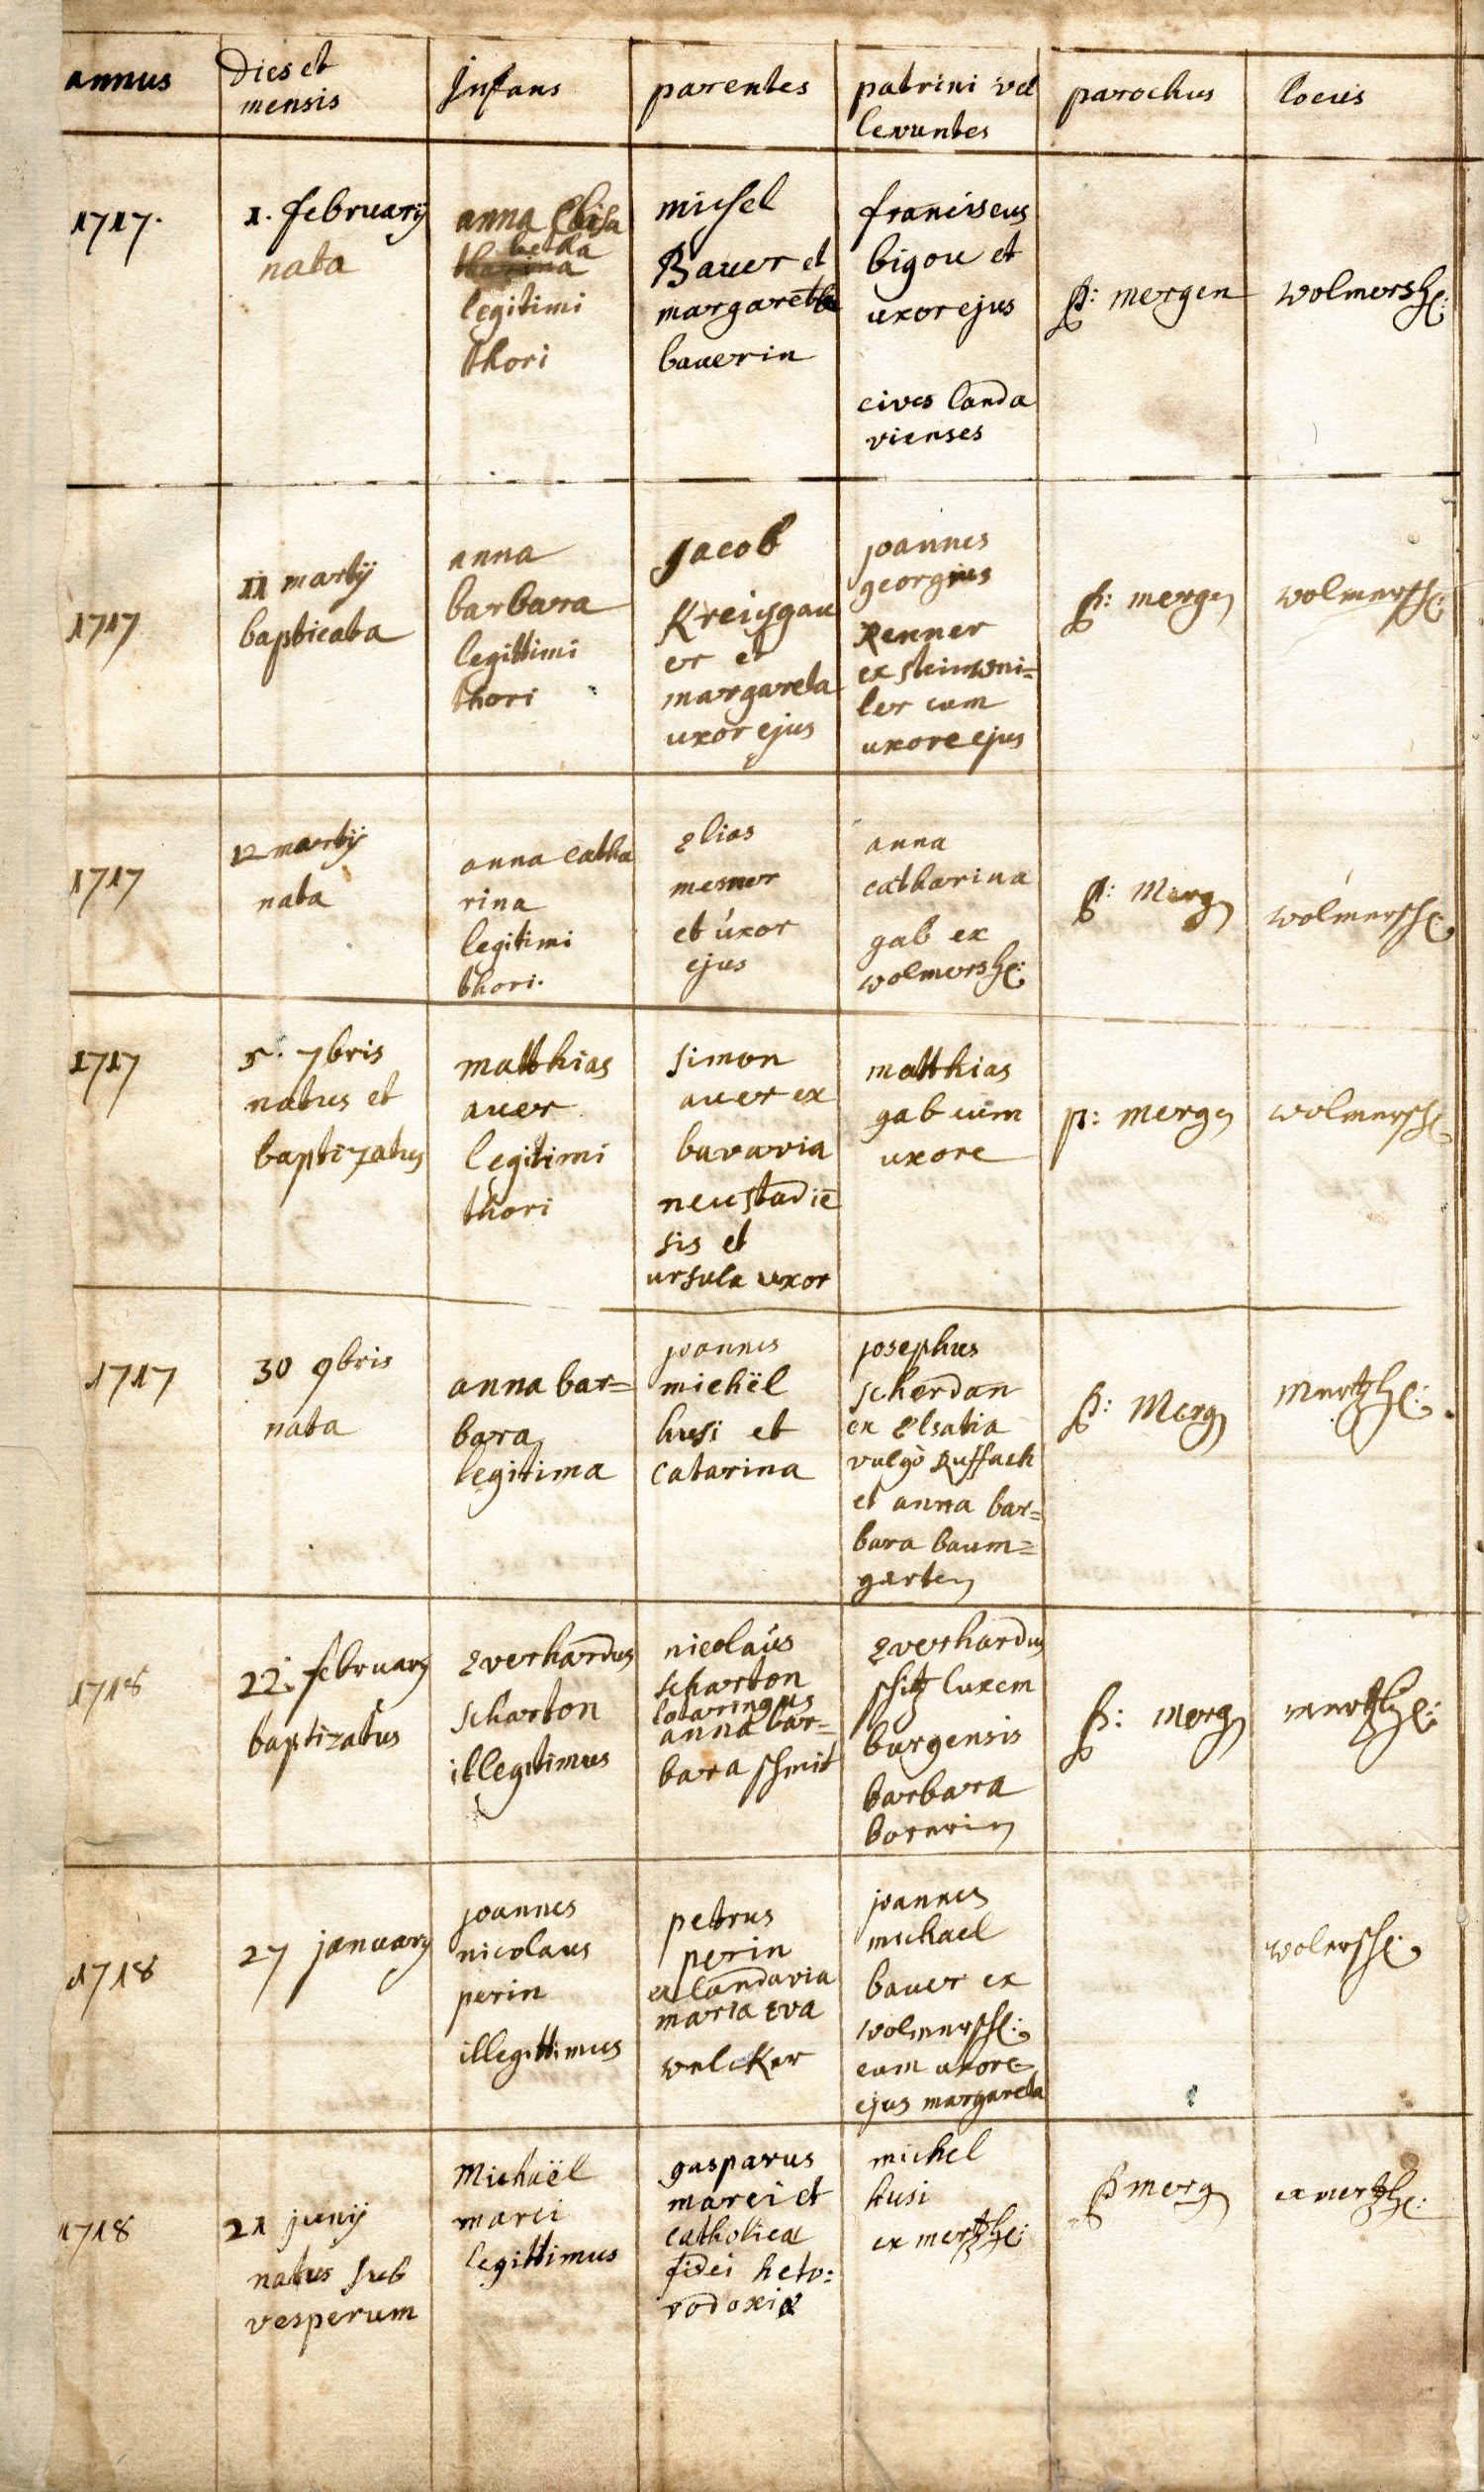 annus
Dies et
mensis
Infans
parentes
patrini vel
levantes
parochus
locus
1717.
1. februarij
nata
anna Elisa
betha
legitimi
thori
michel
Bauer et
margaretha
bauerin
franciscus
bigou et
uxor ejus
cives landa
vienses
p: mergen
wolmersh:
1717
11 martij
baptizata
anna
barbara
legittimi
thori
Jacob
Kreisgau
er et
margareta
uxor ejus
joannes
georgius
Renner
ex steinwei=
ler cum
uxore ejus
p: mergen
wolmersh:
1717
12 martij
nata
anna catha
rina
legitimi
thori.
Elias
mesner
et uxor
ejus
anna
catharina
gab ex
wolmersh:
p: Mergen
wolmersh:
1717
5. 7bris
natus et
baptizatus
matthias
auer
legitimi
thori
simon
auer ex
bavaria
neustadiē
sis et
ursula uxor
matthias
gab cum
uxore
p: mergen
wolmersh:
1717
30 9bris
nata
anna bar=
bara
legitima
joannes
michël
husi et
catarina
josephus
scherdan
ex Elsatia
vulgò Ruffach
et anna bar=
bara baum=
garten
p: Mergen
Mertzh:
1718
22. february
baptizatus
Everhardus
scharton
illegitimus
nicolaus
scharton
lotaringus
anna bar=
bara schmit
Everhardus
schitz luxem
burgensis
barbara
bornerin
p: mergen
mertzh:
1718
27 january
joannes
nicolaus
perin
illegittimus
petrus
perin
ex landavia
maria Eva
welcker
joannes
michael
bauer ex
wolmersh:
cum uxore
ejus margareta
wolersh:
1718
21 junij
natus sub
vesperum
Michaël
marci
legittimus
gasparus
marci et
catholica
fidei hete:
rodoxiæ
michel
husi
ex mertzh:
p mergen
ex mertzh: